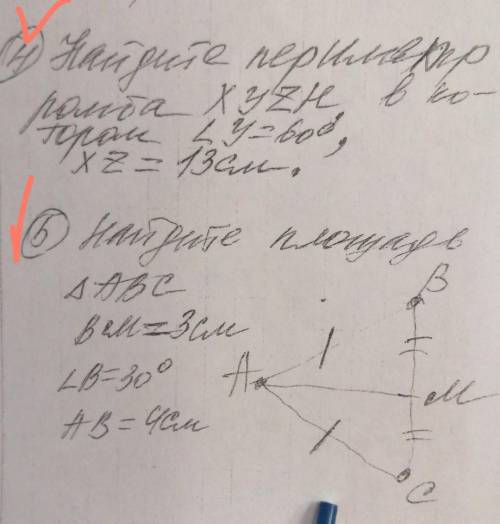 4 Найдите периметр
ромба XYZH, в ко-
тором ∠Y=60°,
XZ = 13см.
5 Найдите площадь
△ABC
BM=3см
∠B=30°
AB=4см
B
A
M
C